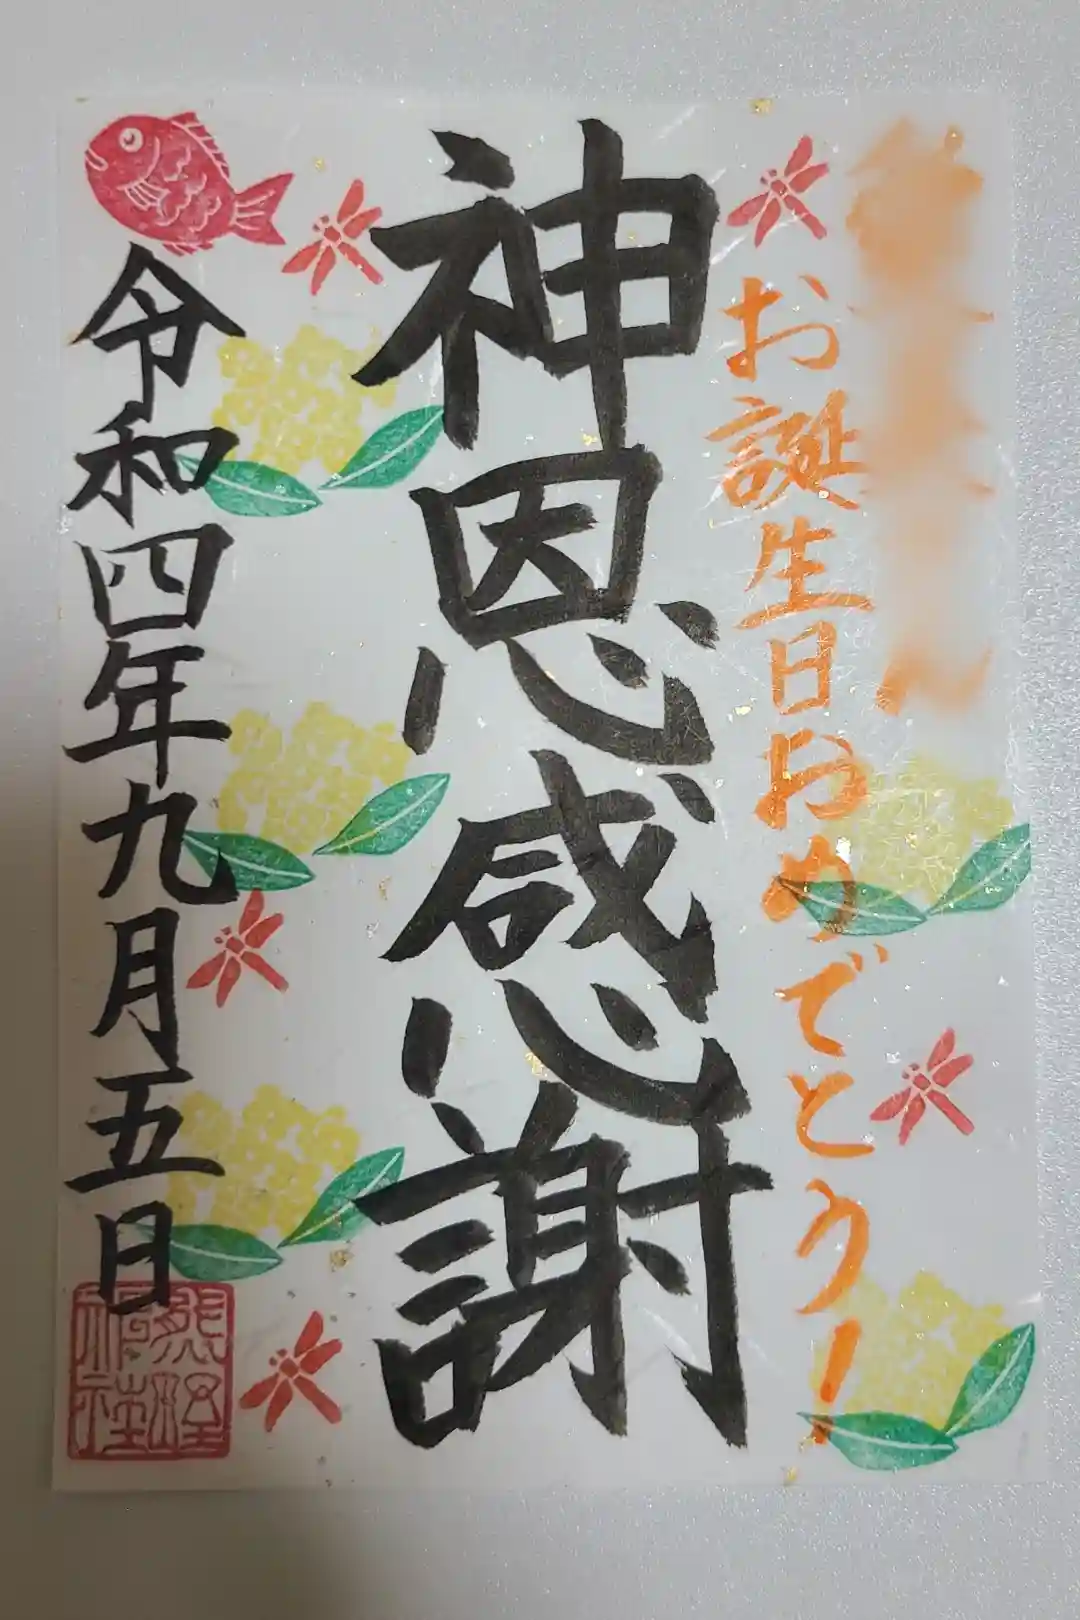 お誕生日おめでとう！
神恩感謝
令和四年九月五日